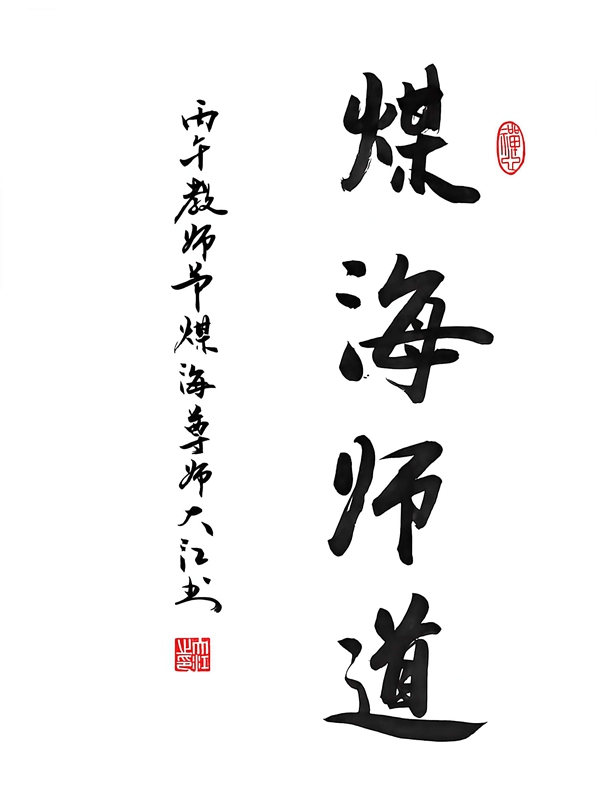 煤海师道
丙午教师节煤海尊师大江书
大江之印